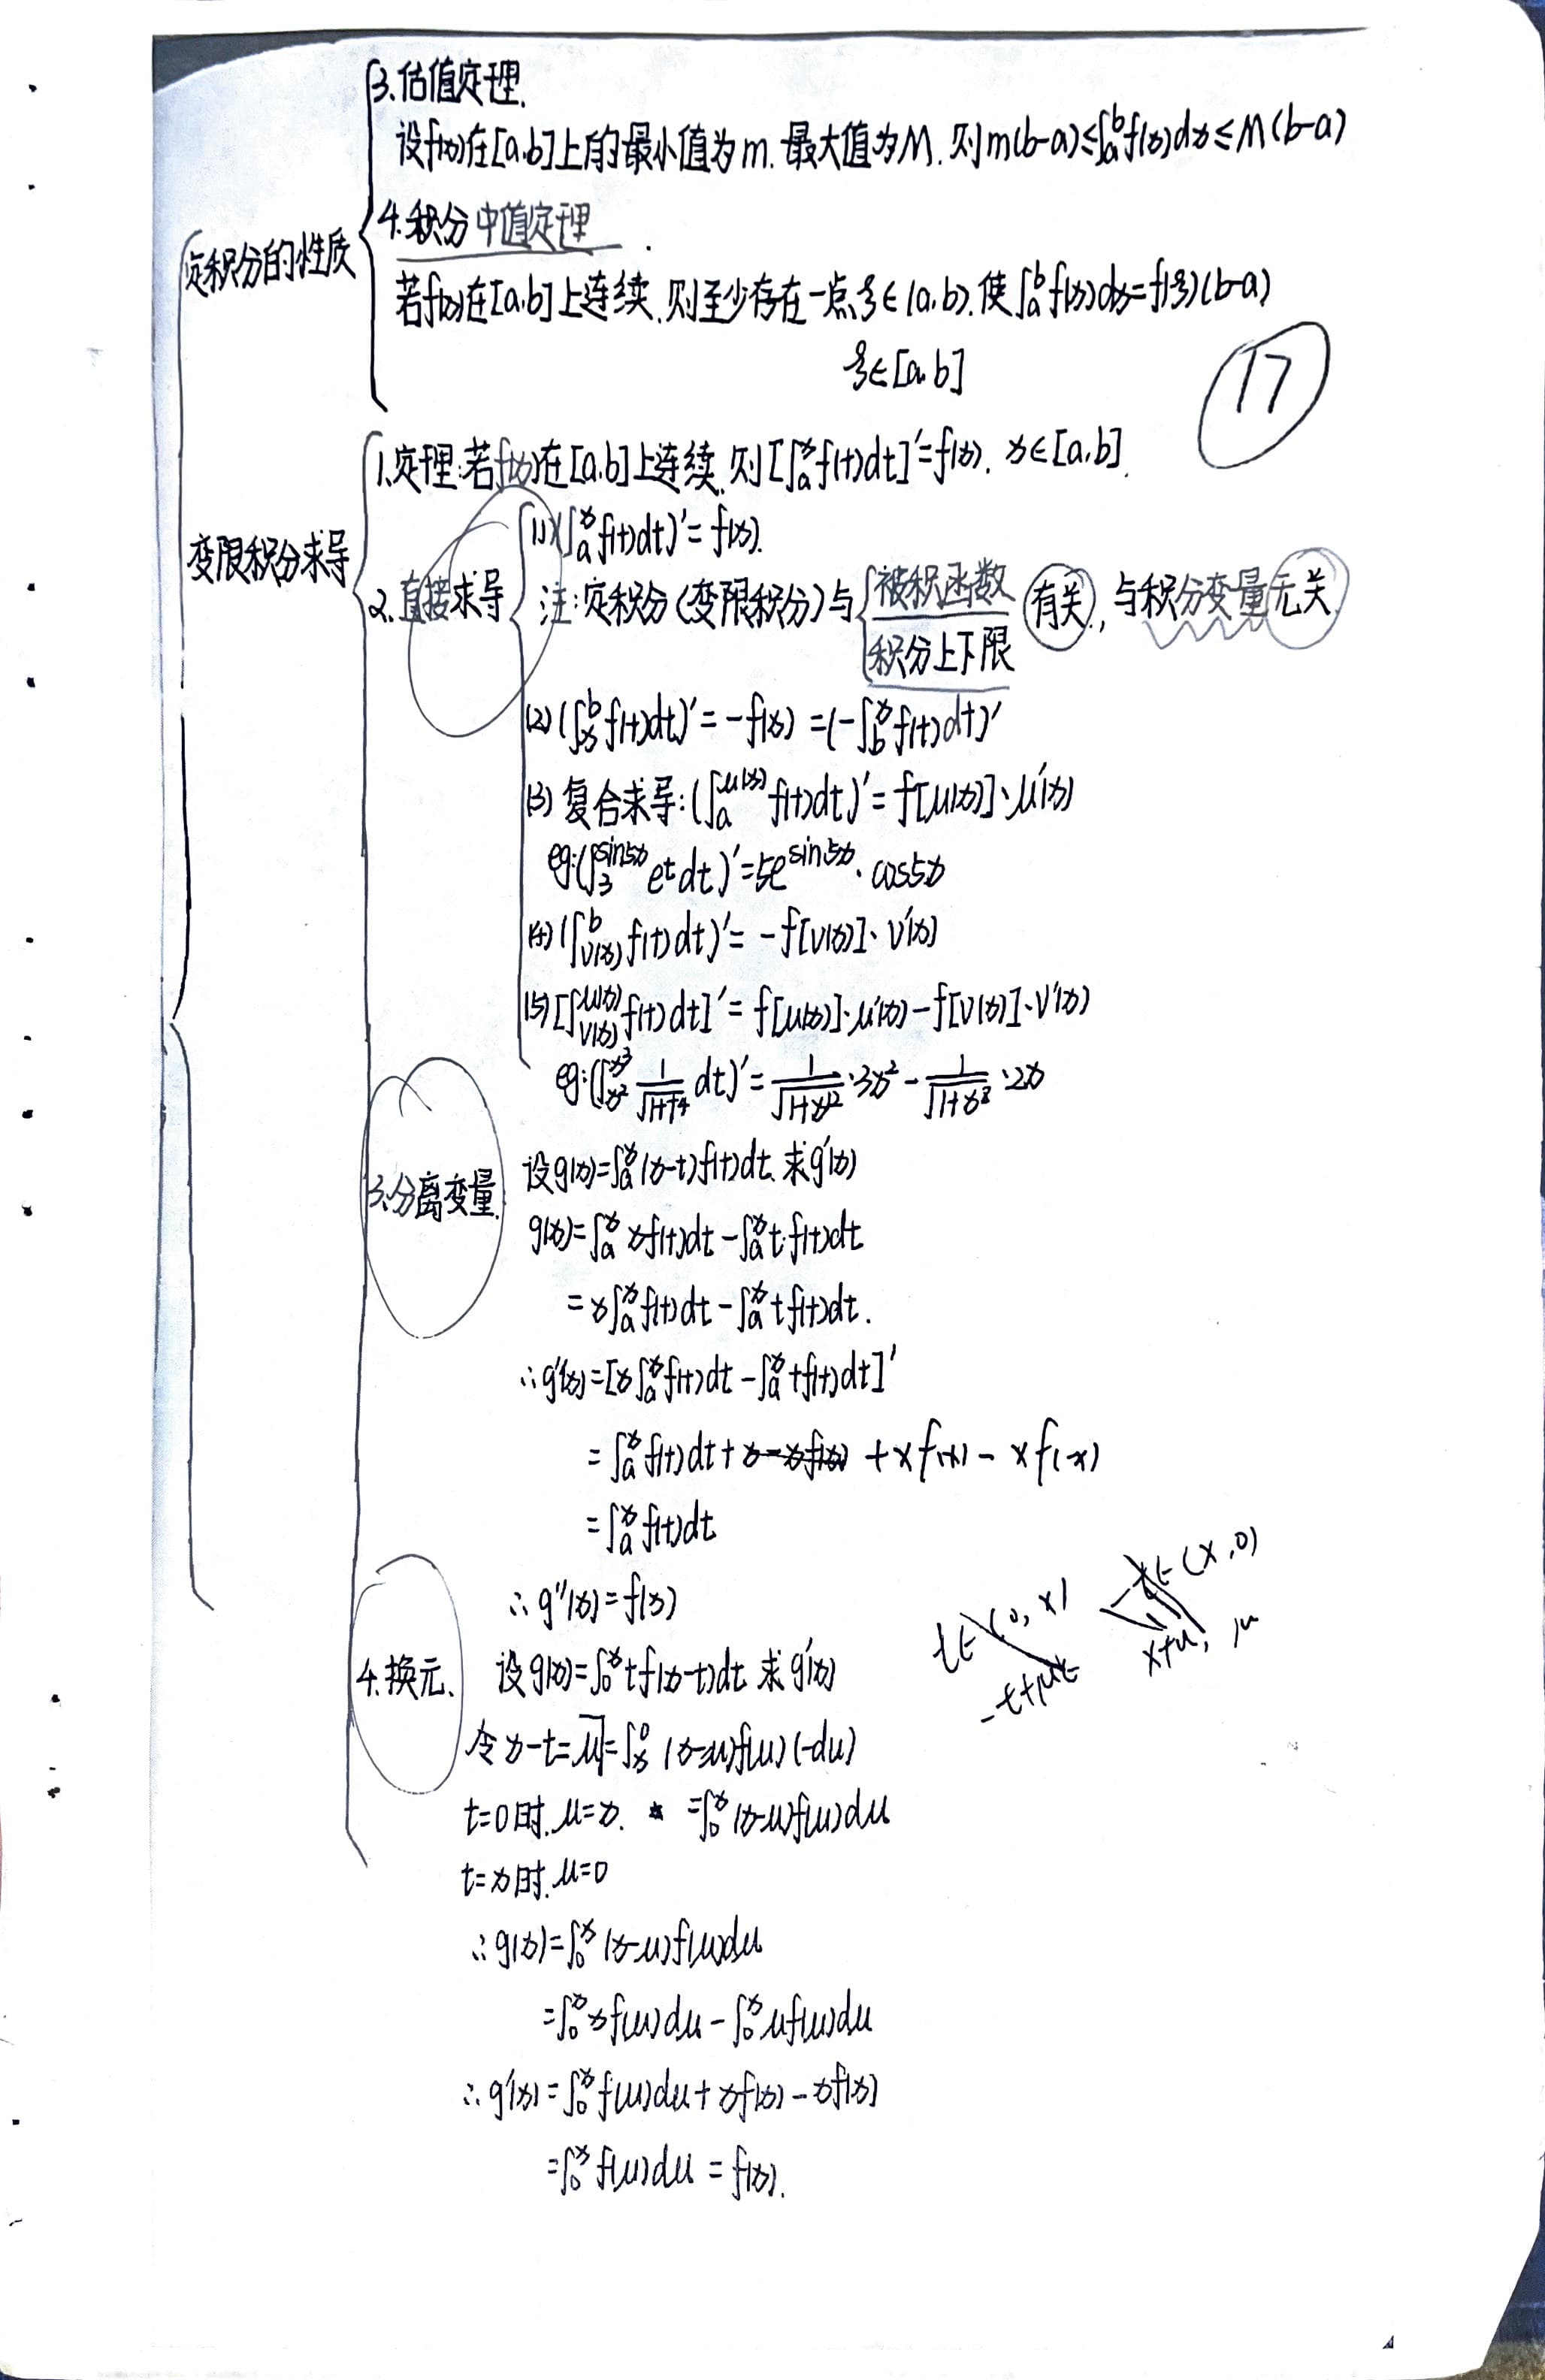 3.估值定理.
设f(x)在[a,b]上的最小值为m.最大值为M.则m(b-a)≤∫ₐᵇf(x)dx≤M(b-a)
定积分的性质
4.积分中值定理
若f(x)在[a,b]上连续.则至少存在一点ξ∈(a,b).使∫ₐᵇf(x)dx=f(ξ)(b-a)
ξ∈[a,b]
17
1.定理:若f(x)在[a,b]上连续.则[∫ₐˣf(t)dt]′=f(x). x∈[a,b].
变限积分求导
2.直接求导
(1)(∫ₐˣf(t)dt)′=f(x).
注:定积分(变限积分)与{被积函数 有关,与积分变量无关
积分上下限
(2)(∫_x^b f(t)dt)′=-f(x)=(-∫_b^x f(t)dt)′
(3)复合求导:(∫_a^{μ(x)} f(t)dt)′=f[μ(x)]·μ′(x)
eg:(∫_3^{sin5x} e^t dt)′=5e^{sin5x}·cos5x
(4)(∫_{v(x)}^b f(t)dt)′=-f[v(x)]·v′(x)
(5)[∫_{v(x)}^{μ(x)} f(t)dt]′=f[μ(x)]·μ′(x)-f[v(x)]·v′(x)
eg:(∫_{x²}^{x³} 1/√(1+t⁴) dt)′=1/√(1+x¹²)·3x²-1/√(1+x⁸)·2x
3.分离变量.
设g(x)=∫ₐˣ(x-t)f(t)dt.求g′(x)
g(x)=∫ₐˣxf(t)dt-∫ₐˣt·f(t)dt
=x∫ₐˣf(t)dt-∫ₐˣtf(t)dt.
∴g′(x)=[x∫ₐˣf(t)dt-∫ₐˣtf(t)dt]′
=∫ₐˣf(t)dt+xf(x)-xf(x)
=∫ₐˣf(t)dt
∴g″(x)=f(x)
t∈(0,x)
-t∈(x,0)
x+u,
4.换元.
设g(x)=∫₀ˣtf(x-t)dt 求g′(x)
令x-t=μ=∫_x^0 (x-u)f(u)(-du)
t=0时.μ=x. =∫₀ˣ(x-u)f(u)du
t=x时.μ=0
∴g(x)=∫₀ˣ(x-u)f(u)du
=∫₀ˣxf(u)du-∫₀ˣuf(u)du
∴g′(x)=∫₀ˣf(u)du+xf(x)-xf(x)
=∫₀ˣf(u)du=f(x).